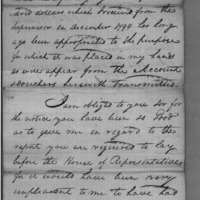 and dollars which I received from the
Supervisor in december 1794. has long
ago been appropriated to the purpose
for which it was placed in my hands
as will appear from the Account
& vouchers herewith transmitted.
I am obliged to you Sir for
the notice you have been so Good
as to give me in regard to the
report you are required to lay
before the House of Representatives
for it would have been very
unpleasant to me to have had